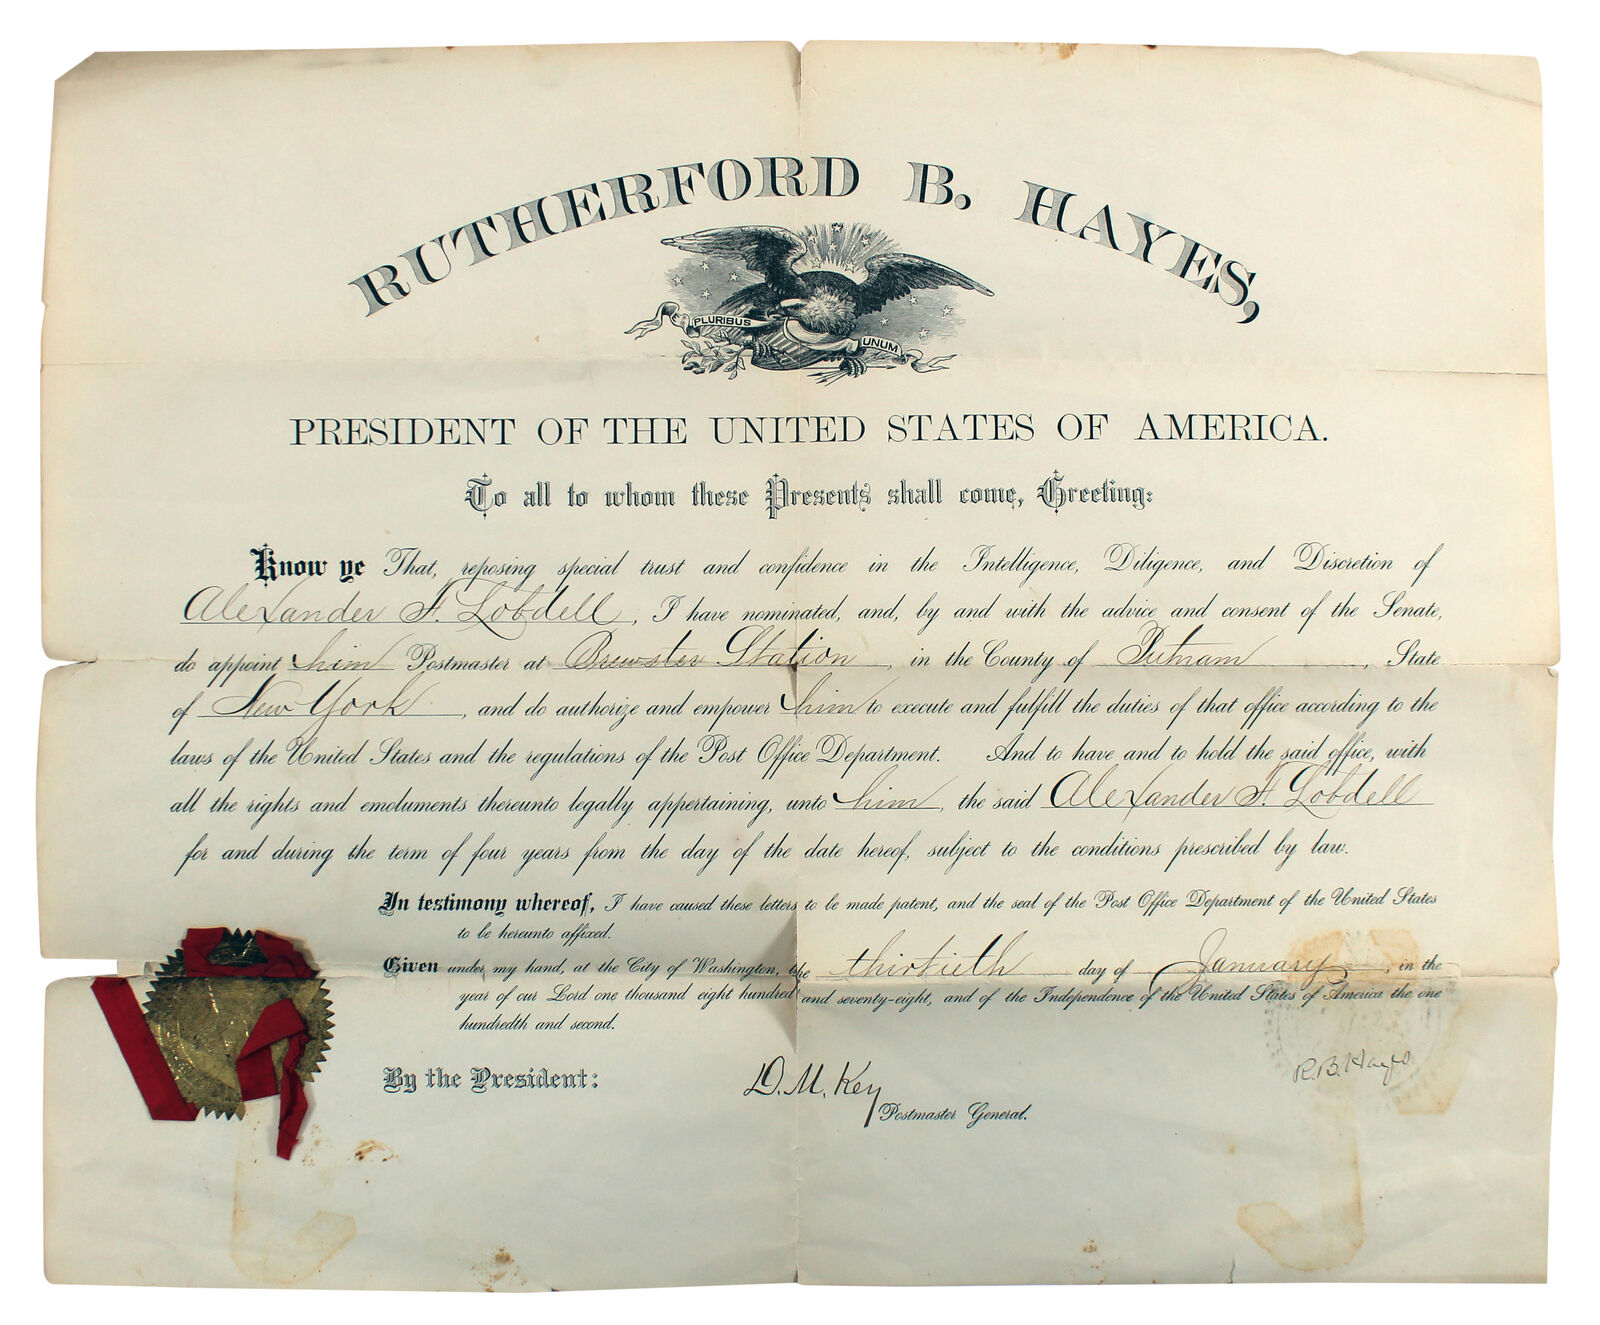 RUTHERFORD B. HAYES,
E PLURIBUS UNUM
PRESIDENT OF THE UNITED STATES OF AMERICA.
To all to whom these Presents shall come, Greeting:
Know ye That, reposing special trust and confidence in the Intelligence, Diligence, and Discretion of
Alexander F. Lobdell, I have nominated, and, by and with the advice and consent of the Senate,
do appoint him Postmaster at Brewster Station, in the County of Putnam, State
of New York, and do authorize and empower him to execute and fulfill the duties of that office according to the
laws of the United States and the regulations of the Post Office Department. And to have and to hold the said office, with
all the rights and emoluments thereunto legally appertaining, unto him, the said Alexander F. Lobdell
for and during the term of four years from the day of the date hereof, subject to the conditions prescribed by law.
In testimony whereof, I have caused these letters to be made patent, and the seal of the Post Office Department of the United States
to be hereunto affixed.
Given under my hand, at the City of Washington, the thirtieth day of January, in the
year of our Lord one thousand eight hundred and seventy-eight, and of the Independence of the United States of America the one
hundredth and second.
R.B. Hayes
By the President:
D. M. Key
Postmaster General.